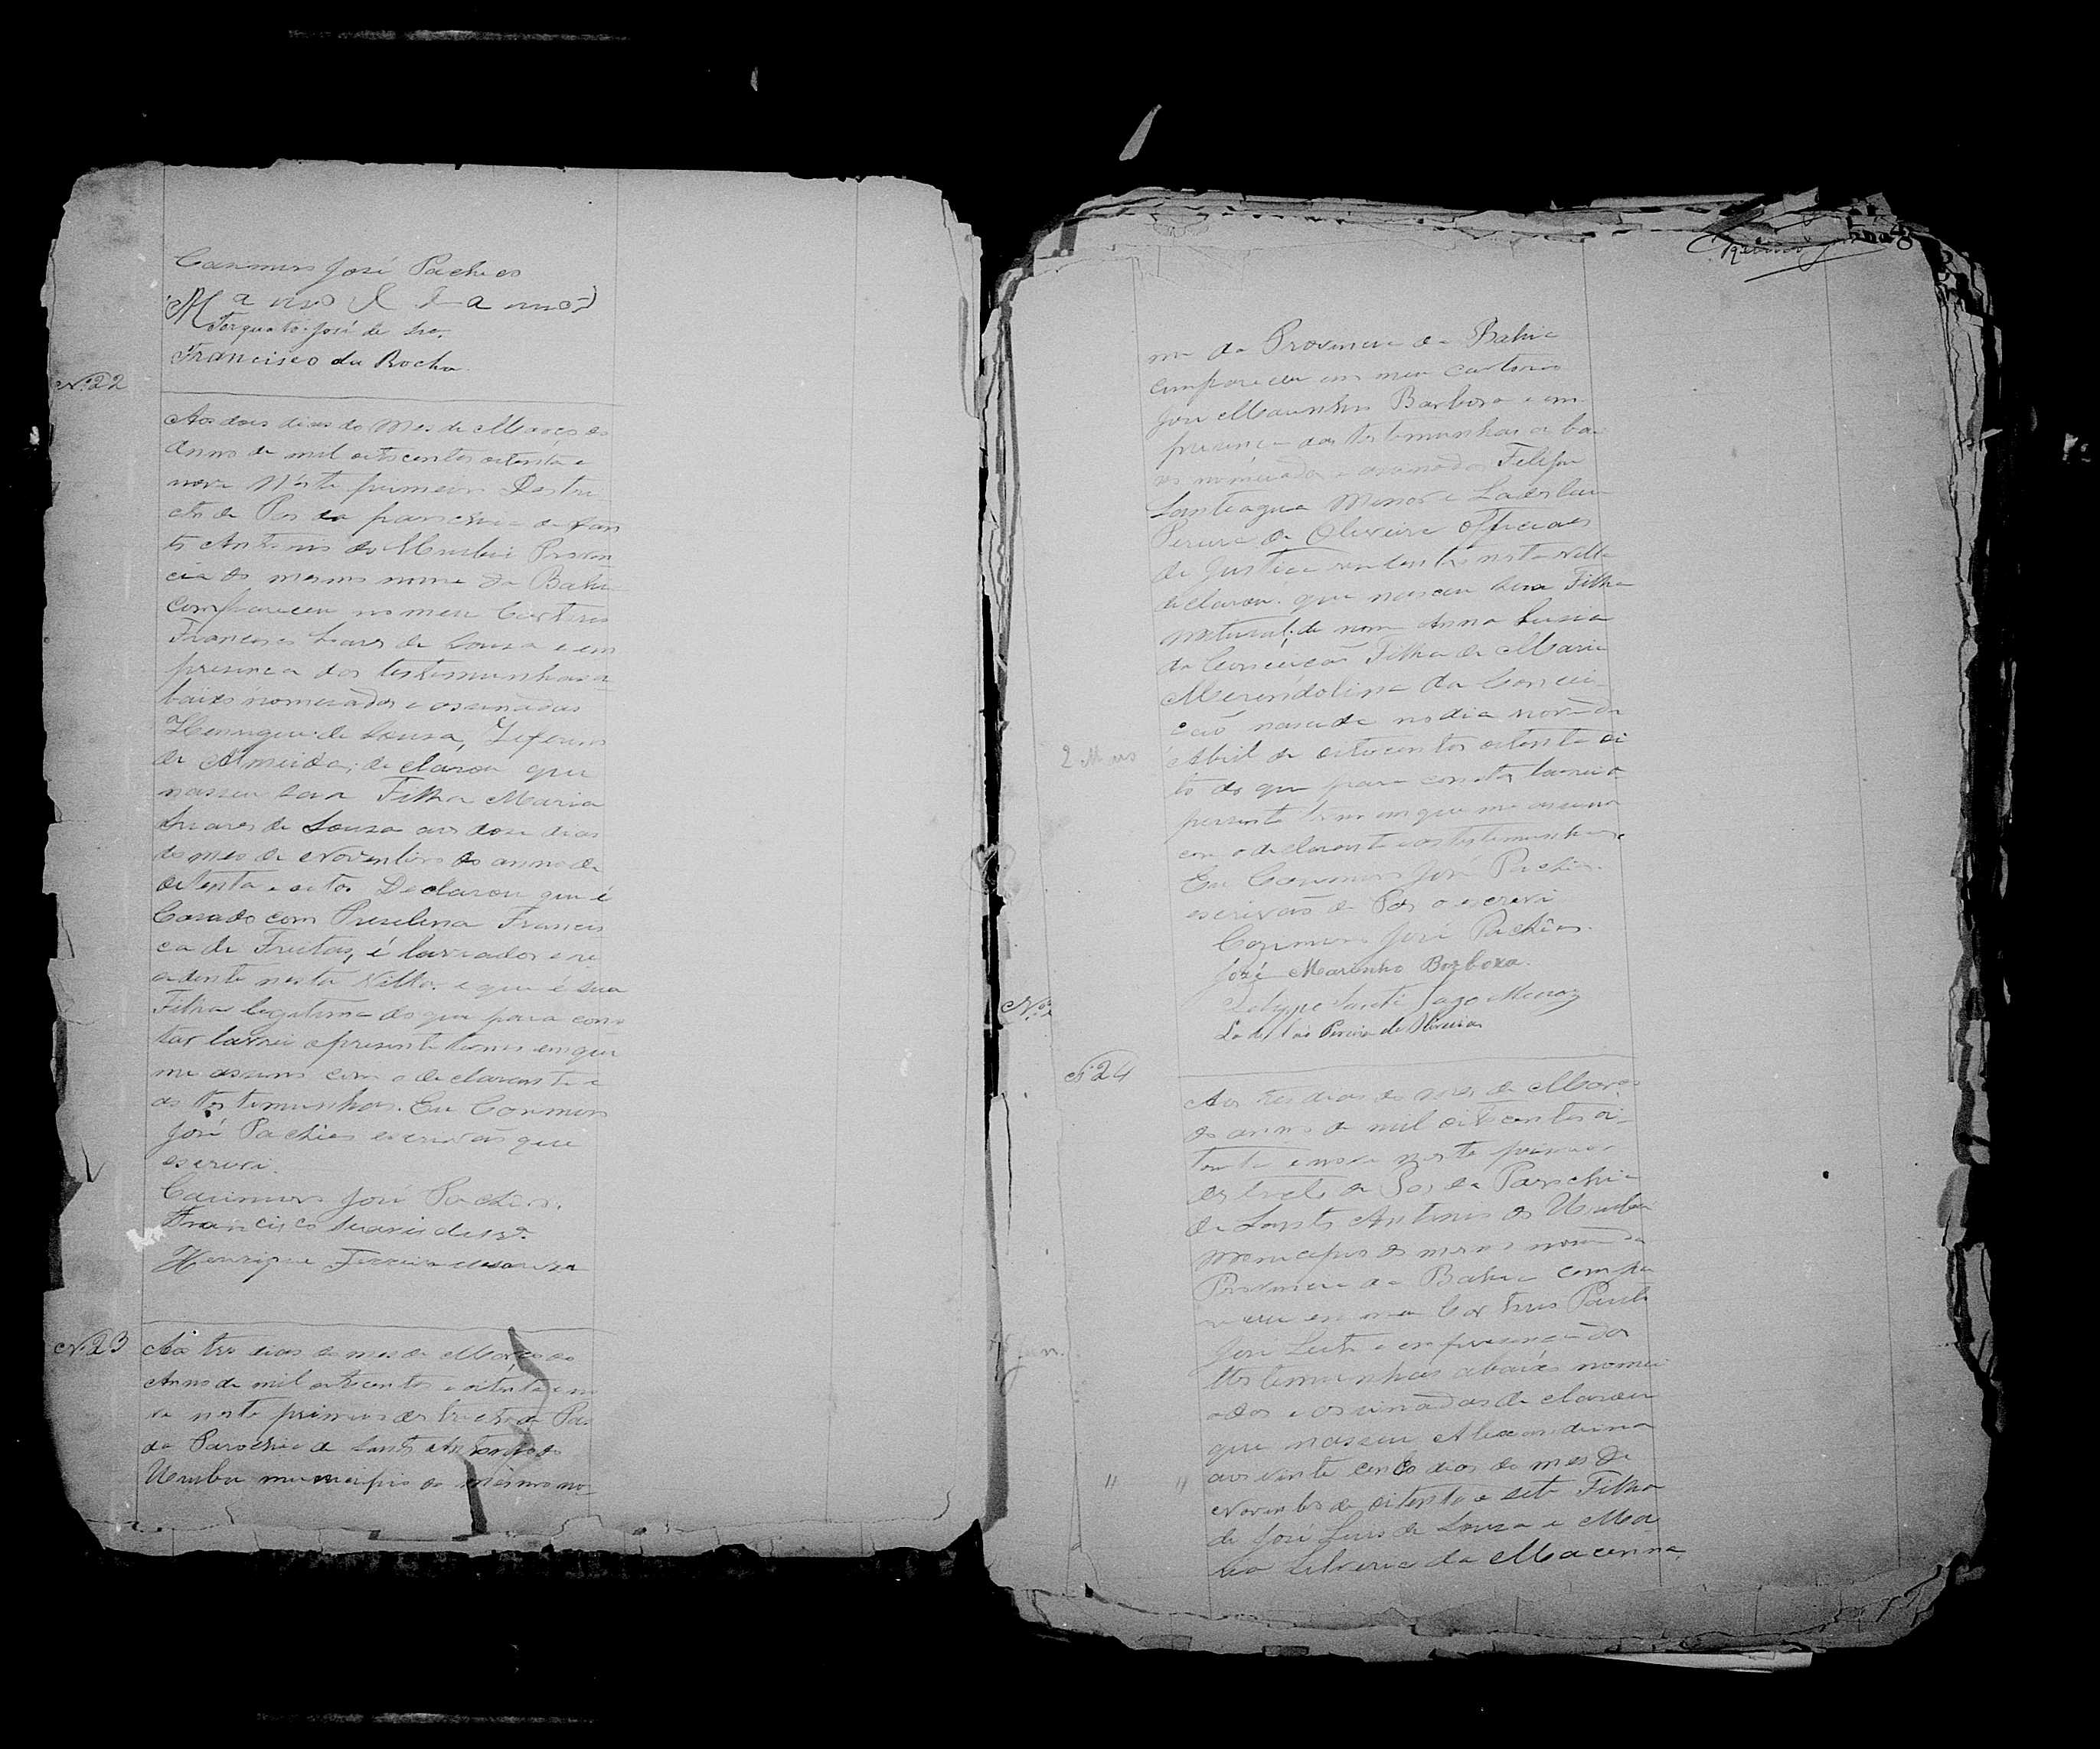 Casimiro José Pacheco
Torquato José de
Francisco da Rocha
Nº 22
Aos dois dias do Mes de Março do
Anno de mil oitocentos oitenta e
nove Neste primeiro Destri
cto de Pas da parochia de San
to Antonio do Urubú Provin
cia do mesmo nome da Bahia
compareceu no meu Cartorio
Francisco Soares de Souza e em
presença das testemunhas a
baixo nomeadas e assinadas
Henrique de Souza, Zeferino
de Almeida, declarou que
nasceu sua Filha Maria
Soares de Souza aos dose dias
do mes de Novembro do anno de
oitenta e oito. Declarou que é
Casado com Presilina Francis
ca de Freitas, é lavrador e re
sidente nesta Villa. e que é sua
Filha legitima do que para cons
tar lavrei o presente termo em que
me assino com o declarante e
as testemunhas. Eu Casimiro
José Pacheco escrivão que
escrevi.
Casimiro José Pacheco.
Francisco Soares de Sz.ª
Henrique Ferreira de Souza
Nº 23
Aos tres dias do mes de Março do
Anno de mil oitocentos e oitenta e no
ve neste primeiro destricto de Pas
da Parochia de Santo Antonio do
Urubu municipio do mesmo no
me da Provincia da Bahia
compareceu em meu cartorio
José Marinho Barbosa e em
presença das testemunhas a bai
xo nomeadas e assinadas Felipe
Santiago Menor e Ladislau
Pereira de Oliveira officiaes
de Justiça residentes nesta villa
declarou que nasceu sua Filha
natural, de nome Anna Lusia
da Conceição Filha de Maria
Merendolina da Concei
ção nascida no dia nove de
Abril de oitocentos oitenta oi
to do que para constar lavrei o
persente termo em que me assino
com o declarante e as testemunhas.
Eu Casimiro José Pacheco
escrivão de Pas o escrevi
Casimiro José Pacheco.
José Marinho Barboza.
Felippe Santi Iago Menor
Ladisláo Pereira de Oliveira
Nº 24
Aos tres dias do mes de Março
do anno de mil oitocentos oi
tenta e nove neste primeiro
destricto de Pas da Parochia
de Santo Antonio do Urubu
Municipio do mesmo nome da
Provincia da Bahia compa
receu em meu Cartorio Paulo
José Leite e em presença das
testemunhas abaixo nomei
adas e assinadas declarou
que nasceu Alexandrina
aos vinte cinco dias do mes de
Novembro de oitenta e sete Filha
de José Luis de Souza e Ma
ria Silveria da Macenna